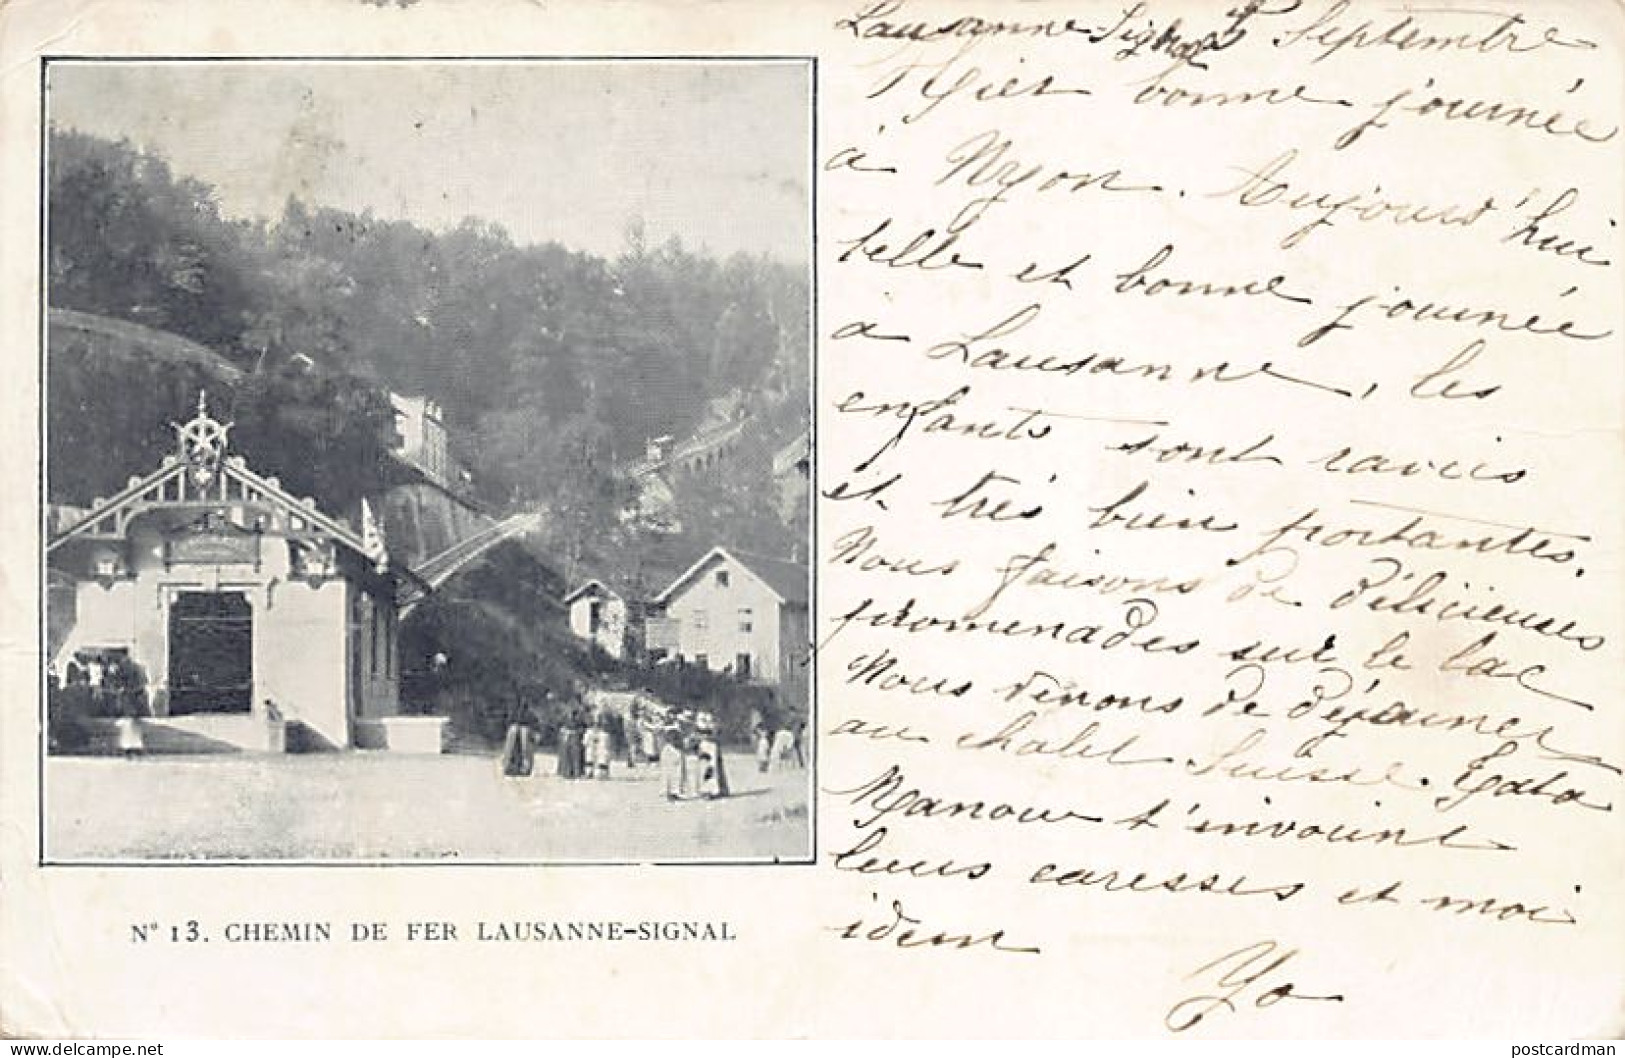 Lausanne-Signal 5 Septembre
Hier bonne journée
à Nyon. Aujourd'hui
belle et bonne journée
à Lausanne, les
enfants sont ravies
et très bien portantes.
Nous faisons de délicieuses
promenades sur le lac
Nous venons de déjeuner
au chalet Suisse.
Manou t'envoient
leurs caresses et moi
idem
Yo
N° 13. CHEMIN DE FER LAUSANNE-SIGNAL
https://www.delcampe.net
postcardman